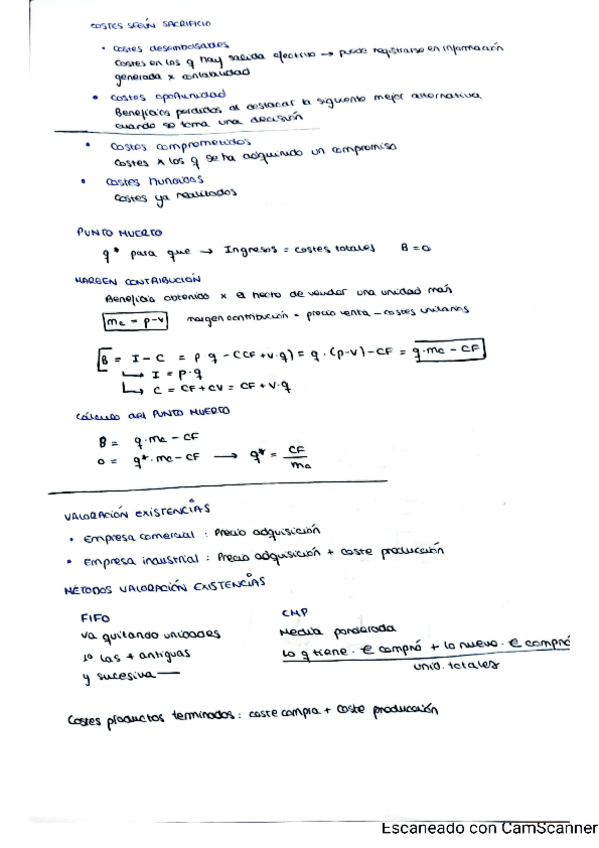 COSTES SEGÚN SACRIFICIO
• Costes desembolsables
Costes en los q hay salida efectivo → puede registrarse en información
generada x contabilidad
• Costes oportunidad
Beneficios perdidos al destacar la siguiente mejor alternativa,
cuando se toma una decisión
• Costes comprometidos
Costes x los q se ha adquirido un compromiso
• Costes hundidos
Costes ya realizados
PUNTO MUERTO
q* para que → Ingresos = costes totales B = 0
MARGEN CONTRIBUCIÓN
Beneficio obtenido x el hecho de vender una unidad más
mc = p-v margen contribución = precio venta - costes unitarios
B = I - C = p q - (CF + v·q) = q·(p-v) - CF = q·mc - CF
↳ I = p·q
↳ C = CF + CV = CF + v·q
Cálculo del PUNTO MUERTO
B = q·mc - CF
0 = q*·mc - CF → q* = CF / mc
VALORACIÓN EXISTENCIAS
• Empresa comercial : Precio adquisición
• Empresa industrial : Precio adquisición + coste producción
MÉTODOS VALORACIÓN EXISTENCIAS
FIFO CMP
va quitando unidades Media ponderada
1º las + antiguas lo q tiene · € compró + lo nuevo · € compró
y sucesiva— unid. totales
Costes productos terminados : coste compra + coste producción
Escaneado con CamScanner